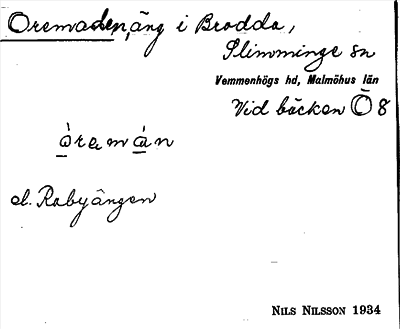 Oremaden, äng i Brodda,
Slimminge sn
Vemmenhögs hd, Malmöhus län
Vid bäcken Ö 8
òremán
el. Rabyängen
NILS NILSSON 1934